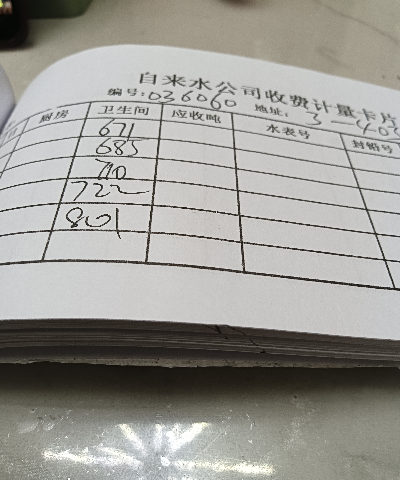 自来水公司收费计量卡片
编号:036060 地址: 3-402
厨房 卫生间 应收吨 水表号 封铅号
671
685
710
722
801